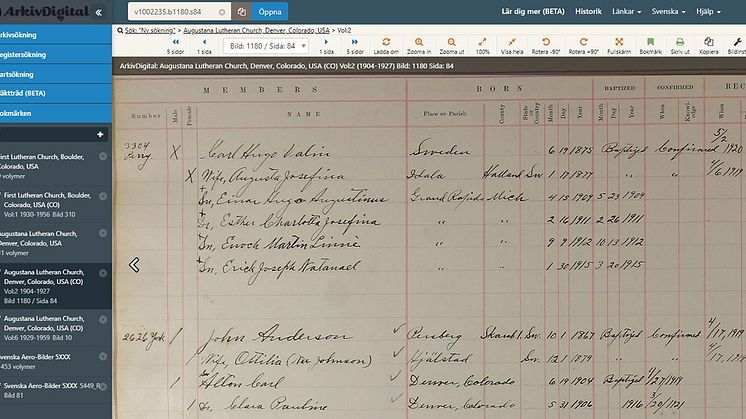 ArkivDigital
v1002235.b1180.s84
Öppna
Lär dig mer (BETA) Historik Länkar Svenska Hjälp
Sök: "Ny sökning" > Augustana Lutheran Church, Denver, Colorado, USA > Vol:2
5 sidor 1 sida Bild: 1180 / Sida: 84 1 sida 5 sidor Ladda om Zooma in Zooma ut 100% Visa hela Rotera -90° Rotera +90° Fullskärm Bokmärk Skriv ut Kopiera Bildinst
ArkivDigital: Augustana Lutheran Church, Denver, Colorado, USA (CO) Vol:2 (1904-1927) Bild: 1180 Sida: 84
rkivsökning
egistersökning
artsökning
läktträd (BETA)
okmärken
irst Lutheran Church, Boulder,
olorado, USA
volymer
First Lutheran Church, Boulder,
Colorado, USA (CO)
Vol:1 1930-1956 Bild 310
ugustana Lutheran Church,
enver, Colorado, USA
1 volymer
Augustana Lutheran Church,
Denver, Colorado, USA (CO)
Vol:2 1904-1927
Bild 1180 / Sida 84
Augustana Lutheran Church,
Denver, Colorado, USA (CO)
Vol:6 1929-1959 Bild 10
venska Aero-Bilder 5XXX
453 volymer
Svenska Aero-Bilder 5XXX 5449_R
Bild 81
MEMBERS BORN BAPTIZED CONFIRMED REC
Number Male Female NAME Place or Parish County State or Country Month Day Year Month Day Year When Knowledge When
3304 Perry X Carl Hugo Valin Sweden 6 19 1875 Baptized Confirmed 5/2 1920
X Wife, Augusta Josefina Idala Halland Sw. 1 17 1877 " " 4/6 1919
Sn, Einar Hugo Augustinus Grand Rapids Mich 4 15 1909 5 23 1909
Dr, Esther Charlotta Josefina " " 2 16 1911 2 26 1911
Sn, Enoch Martin Linne " " 9 9 1912 10 13 1912
Sn, Erick Joseph Natanael " " 1 30 1915 3 20 1915
2626 York 1 John Anderson Skarab. Sw. 10 1 1867 Baptized Confirmed 4/17, 1919
Wife, Ottilia (Nee Johnson) Sw. 12 1 1879 " " 17, 1919
1 Sn Alton Carl Denver, Colorado 6 19 1904 Baptized 4/27 1919
1 Dr, Clara Pauline Denver, Colorado 5 31 1906 1916 3/20 1921